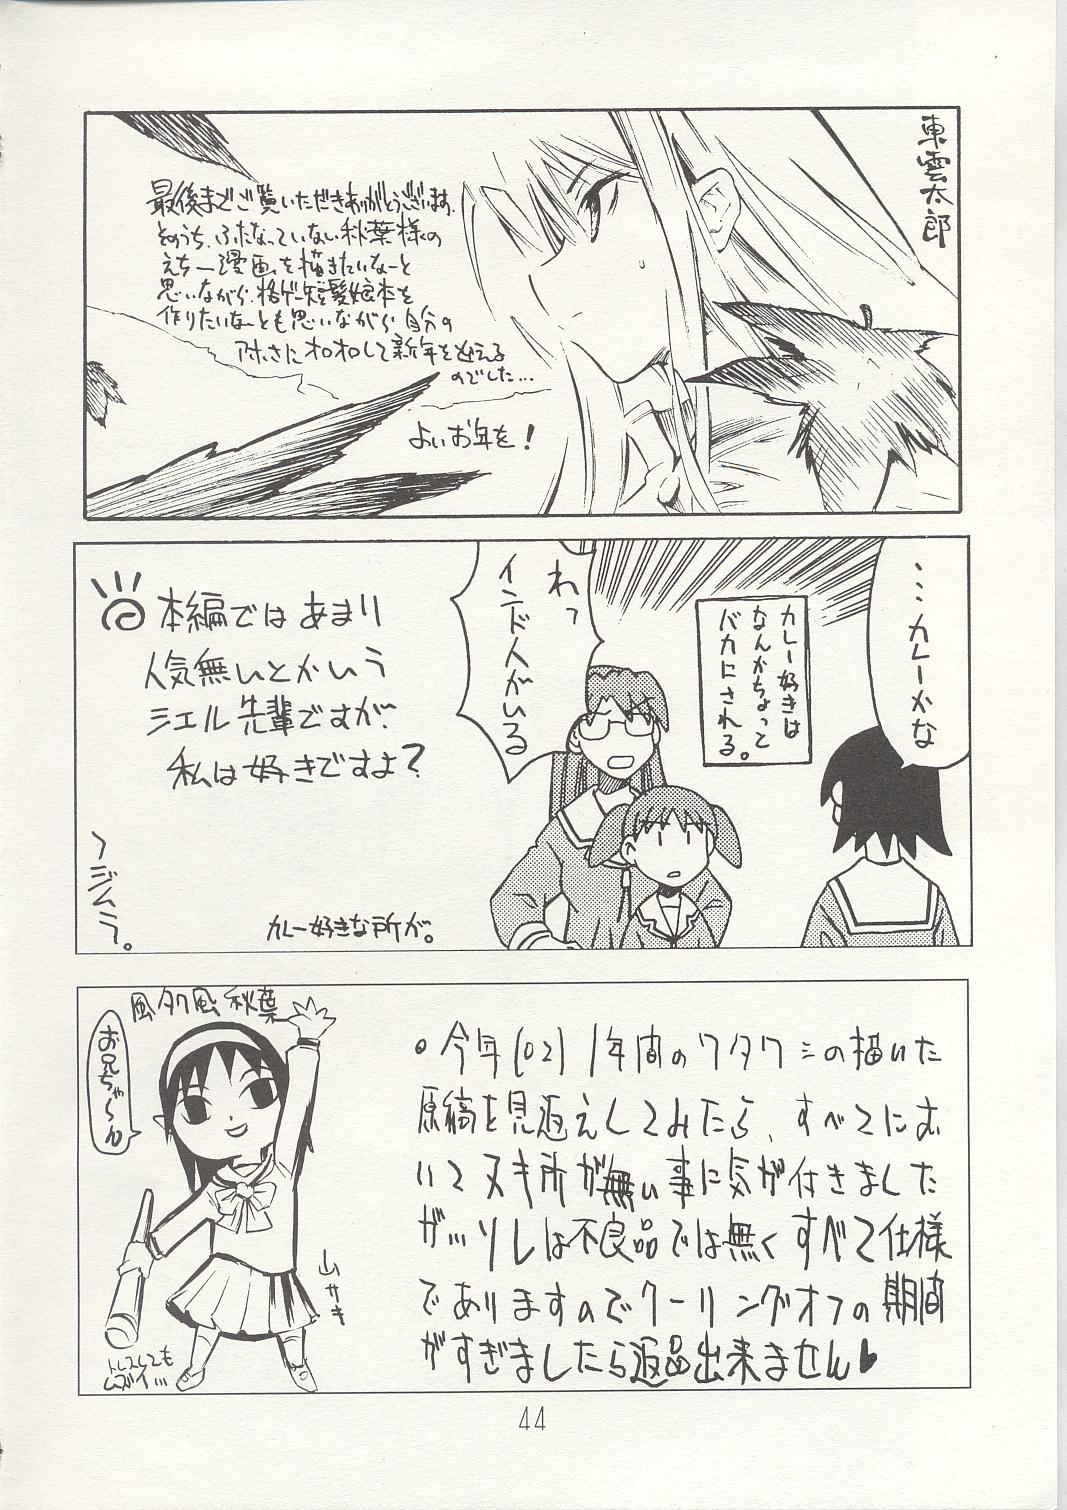 東雲太郎
最後までご覧いただきありがとうございます。
そのうち、ふたなっていない秋葉様の
えちー漫画を描きたいなーと
思いながら、格ゲー短髪娘本を
作りたいなーとも思いながら自分の
アホさにオロオロして新年を迎える
のでした…
よいお年を!
…カレーかな
カレー好きは
なんかちょって
バカにされる。
わっ
インド人がいる
本編ではあまり
人気無いとかいう
シエル先輩ですが、
私は好きですよ?
カレー好きな所が。
〜ジムラ。
風タク風秋葉
お兄ちゃ〜ん
山サキ
トレスしても
ムズイ…
●今年(02)1年間のワタクシの描いた
原稿を見返えしてみたら、すべてにお
いてヌキ所が無い事に気が付きました
が、ソレは不良品では無くすべて仕様
でありますのでクーリングオフの期間
がすぎましたら返品出来ません♥
44